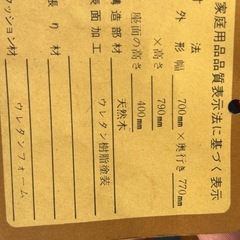 家庭用品品質表示法に基づく表示
寸 法
外形 幅 700mm×奥行き770mm
×高さ 790mm
座面の高さ 400mm
構造部材 天然木
表面加工 ウレタン樹脂塗装
張り材
クッション材 ウレタンフォーム